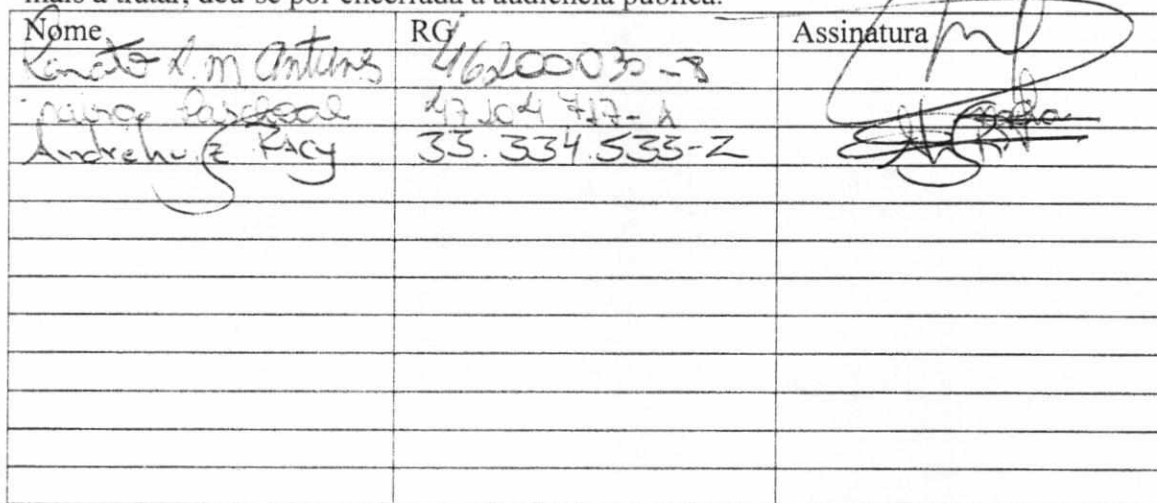 mais a tratar, deu-se por encerrada a audiência pública.
Nome RG Assinatura
Renato R. M Antunes 46200030-8
Paschoal 47104717-
Andrehu z Racy 33.334.533-2